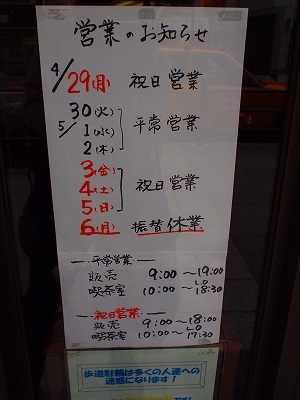 営業のお知らせ
4/29(月) 祝日営業
30(火)
5/1(水) 平常営業
2(木)
3(金)
4(土) 祝日営業
5(日)
6(月) 振替休業
― 平常営業 ―
販売 9:00 ~ 19:00
喫茶室 10:00 ~ LO 18:30
― 祝日営業 ―
販売 9:00 ~ 18:00
喫茶室 10:00 ~ LO 17:30
歩道駐輪は多くの人達への
迷惑になります!